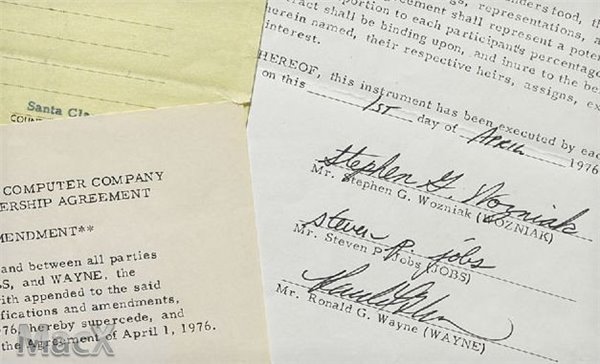 Santa Cla
COUN
COMPUTER COMPANY
ERSHIP AGREEMENT
MENDMENT**
and between all parties
BS, and WAYNE, the
with appended to the said
ifications and amendments,
976, hereby supercede, and
the Agreement of April 1, 1976.
ngs, representations, a
greement shall represent a poten
portion to each participant's percentag
tract shall be binding upon, and inure to the be
herein named, their respective heirs, assigns, ex
interest.
HEREOF, this instrument has been executed by eac
on this 1ST day of APRIL 1976
Stephen G. Wozniak
Mr. Stephen G. Wozniak (WOZNIAK)
steven p. jobs
Mr. Steven P. Jobs (JOBS)
Mr. Ronald G. Wayne (WAYNE)
MacX